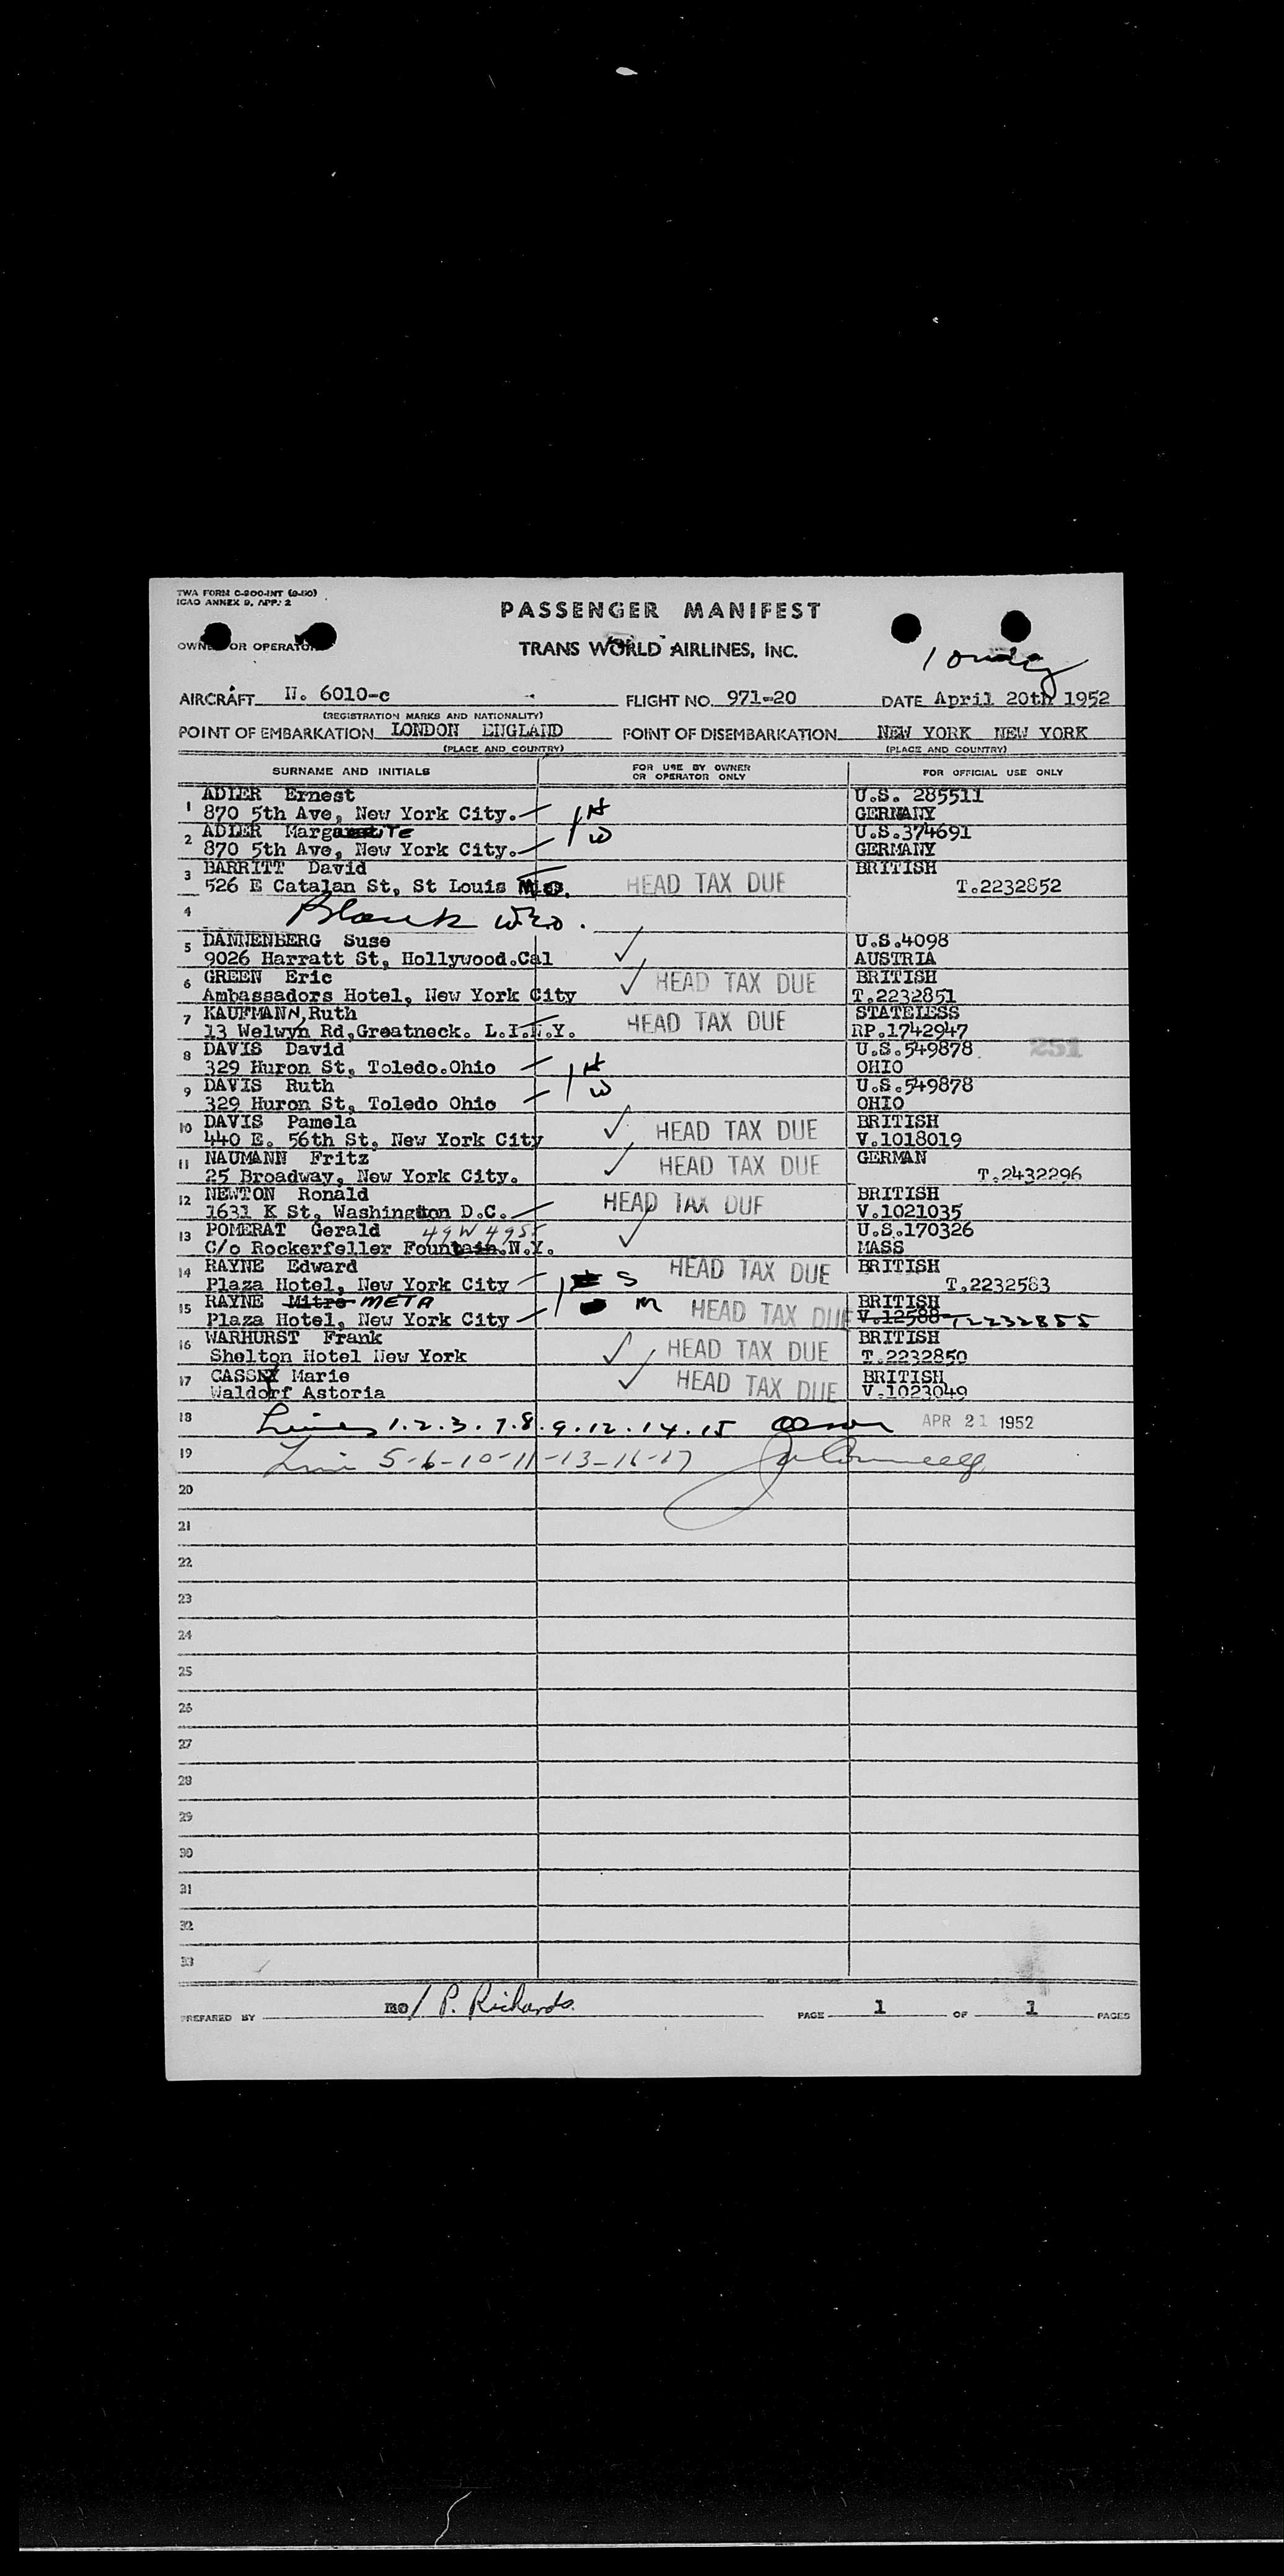 TWA FORM C-900-INT (9-50)
ICAO ANNEX 9, APP. 2
PASSENGER MANIFEST
OWNER OR OPERATOR TRANS WORLD AIRLINES, INC.
AIRCRAFT N. 6010-c FLIGHT NO. 971-20 DATE April 20th 1952
(REGISTRATION MARKS AND NATIONALITY)
POINT OF EMBARKATION LONDON ENGLAND POINT OF DISEMBARKATION NEW YORK NEW YORK
(PLACE AND COUNTRY) (PLACE AND COUNTRY)
SURNAME AND INITIALS FOR USE BY OWNER OR OPERATOR ONLY FOR OFFICIAL USE ONLY
1 ADLER Ernest U.S. 285511
870 5th Ave, New York City. 1 H GERMANY
2 ADLER Margarite U.S.374691
870 5th Ave, New York City. W GERMANY
3 BARRITT David BRITISH
526 E Catalan St, St Louis HEAD TAX DUE T.2232852
4 Blank
5 DANNENBERG Suse U.S.4098
9026 Harratt St, Hollywood.Cal ✓ AUSTRIA
6 GREEN Eric BRITISH
Ambassadors Hotel, New York City ✓ HEAD TAX DUE T.2232851
7 KAUFMANN,Ruth STATELESS
13 Welwyn Rd,Greatneck. L.I.N.Y. HEAD TAX DUE RP.1742947
8 DAVIS David U.S.549878 251
329 Huron St, Toledo.Ohio 1 H OHIO
9 DAVIS Ruth U.S.549878
329 Huron St, Toledo Ohio W OHIO
10 DAVIS Pamela BRITISH
440 E. 56th St, New York City ✓ HEAD TAX DUE V.1018019
11 NAUMANN Fritz GERMAN
25 Broadway, New York City. ✓ HEAD TAX DUE T.2432296
12 NEWTON Ronald BRITISH
1631 K St, Washington D.C. HEAD TAX DUE V.1021035
13 POMERAT Gerald 49 W 49 St U.S.170326
C/o Rockerfeller Fountain.N.Y. ✓ MASS
14 RAYNE Edward BRITISH
Plaza Hotel, New York City 1 S HEAD TAX DUE T.2232583
15 RAYNE Mitre META BRITISH
Plaza Hotel, New York City M HEAD TAX DUE V.12588 T2232855
16 WARHURST Frank BRITISH
Shelton Hotel New York ✓ HEAD TAX DUE T.2232850
17 CASSEY Marie BRITISH
Waldorf Astoria ✓ HEAD TAX DUE V.1023049
18 Lines 1.2.3.7.8.9.12.14.15 APR 21 1952
19 Line 5-6-10-11-13-16-17
20
21
22
23
24
25
26
27
28
29
30
31
32
33
PREPARED BY mo/ P. Richards. PAGE 1 OF 1 PAGES